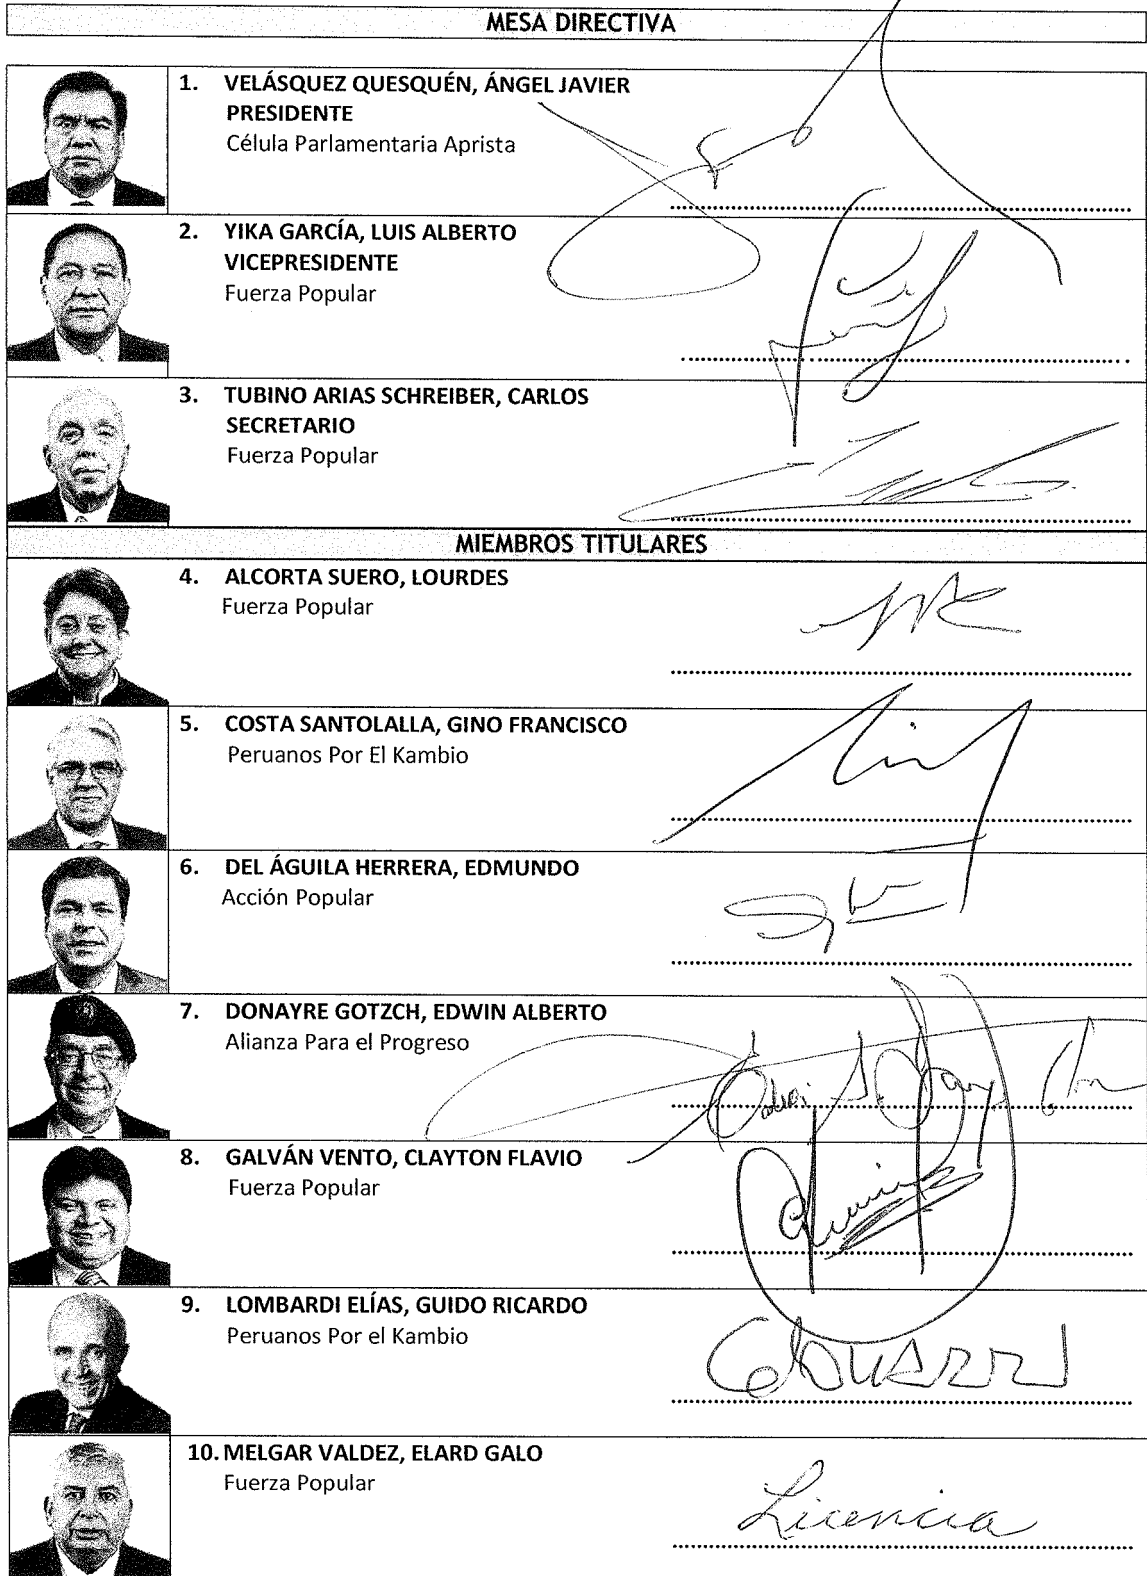 MESA DIRECTIVA
1. VELÁSQUEZ QUESQUÉN, ÁNGEL JAVIER
PRESIDENTE
Célula Parlamentaria Aprista
2. YIKA GARCÍA, LUIS ALBERTO
VICEPRESIDENTE
Fuerza Popular
3. TUBINO ARIAS SCHREIBER, CARLOS
SECRETARIO
Fuerza Popular
MIEMBROS TITULARES
4. ALCORTA SUERO, LOURDES
Fuerza Popular
5. COSTA SANTOLALLA, GINO FRANCISCO
Peruanos Por El Kambio
6. DEL ÁGUILA HERRERA, EDMUNDO
Acción Popular
7. DONAYRE GOTZCH, EDWIN ALBERTO
Alianza Para el Progreso
8. GALVÁN VENTO, CLAYTON FLAVIO
Fuerza Popular
9. LOMBARDI ELÍAS, GUIDO RICARDO
Peruanos Por el Kambio
10. MELGAR VALDEZ, ELARD GALO
Fuerza Popular
Licencia